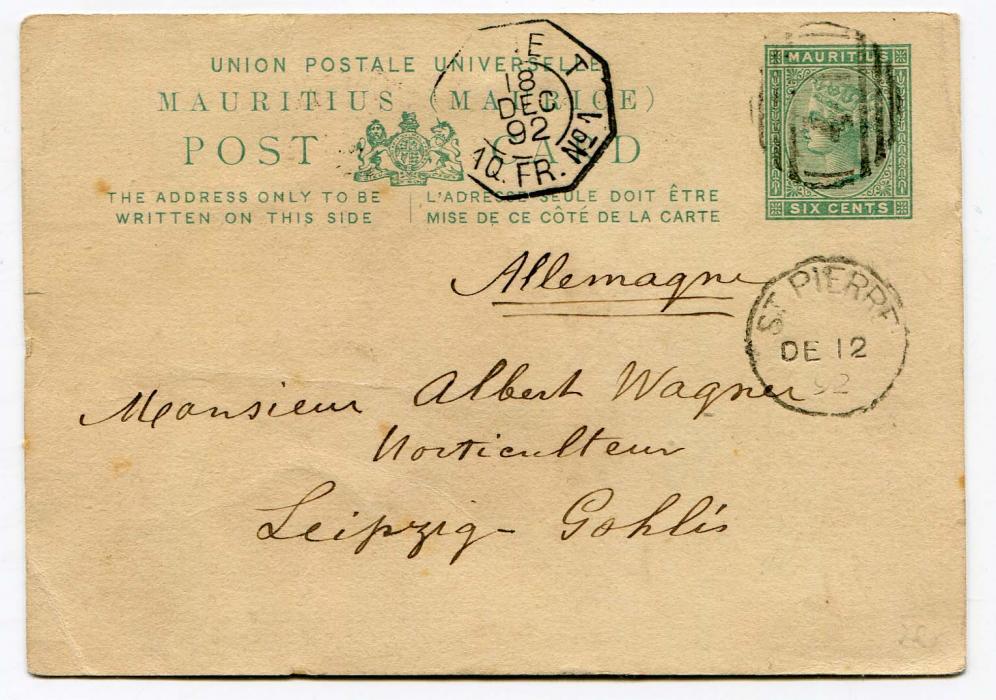 UNION POSTALE UNIVERSELLE
MAURITIUS (MAURICE)
POST CARD
THE ADDRESS ONLY TO BE
WRITTEN ON THIS SIDE
L'ADRESSE SEULE DOIT ÊTRE
MISE DE CE CÔTÉ DE LA CARTE
18
DEC
92
FR. Nº 1
MAURITIUS
SIX CENTS
Allemagne
ST PIERRE
DE 12
92
Monsieur Albert Wagner
Horticulteur
Leipzig-Gohlis